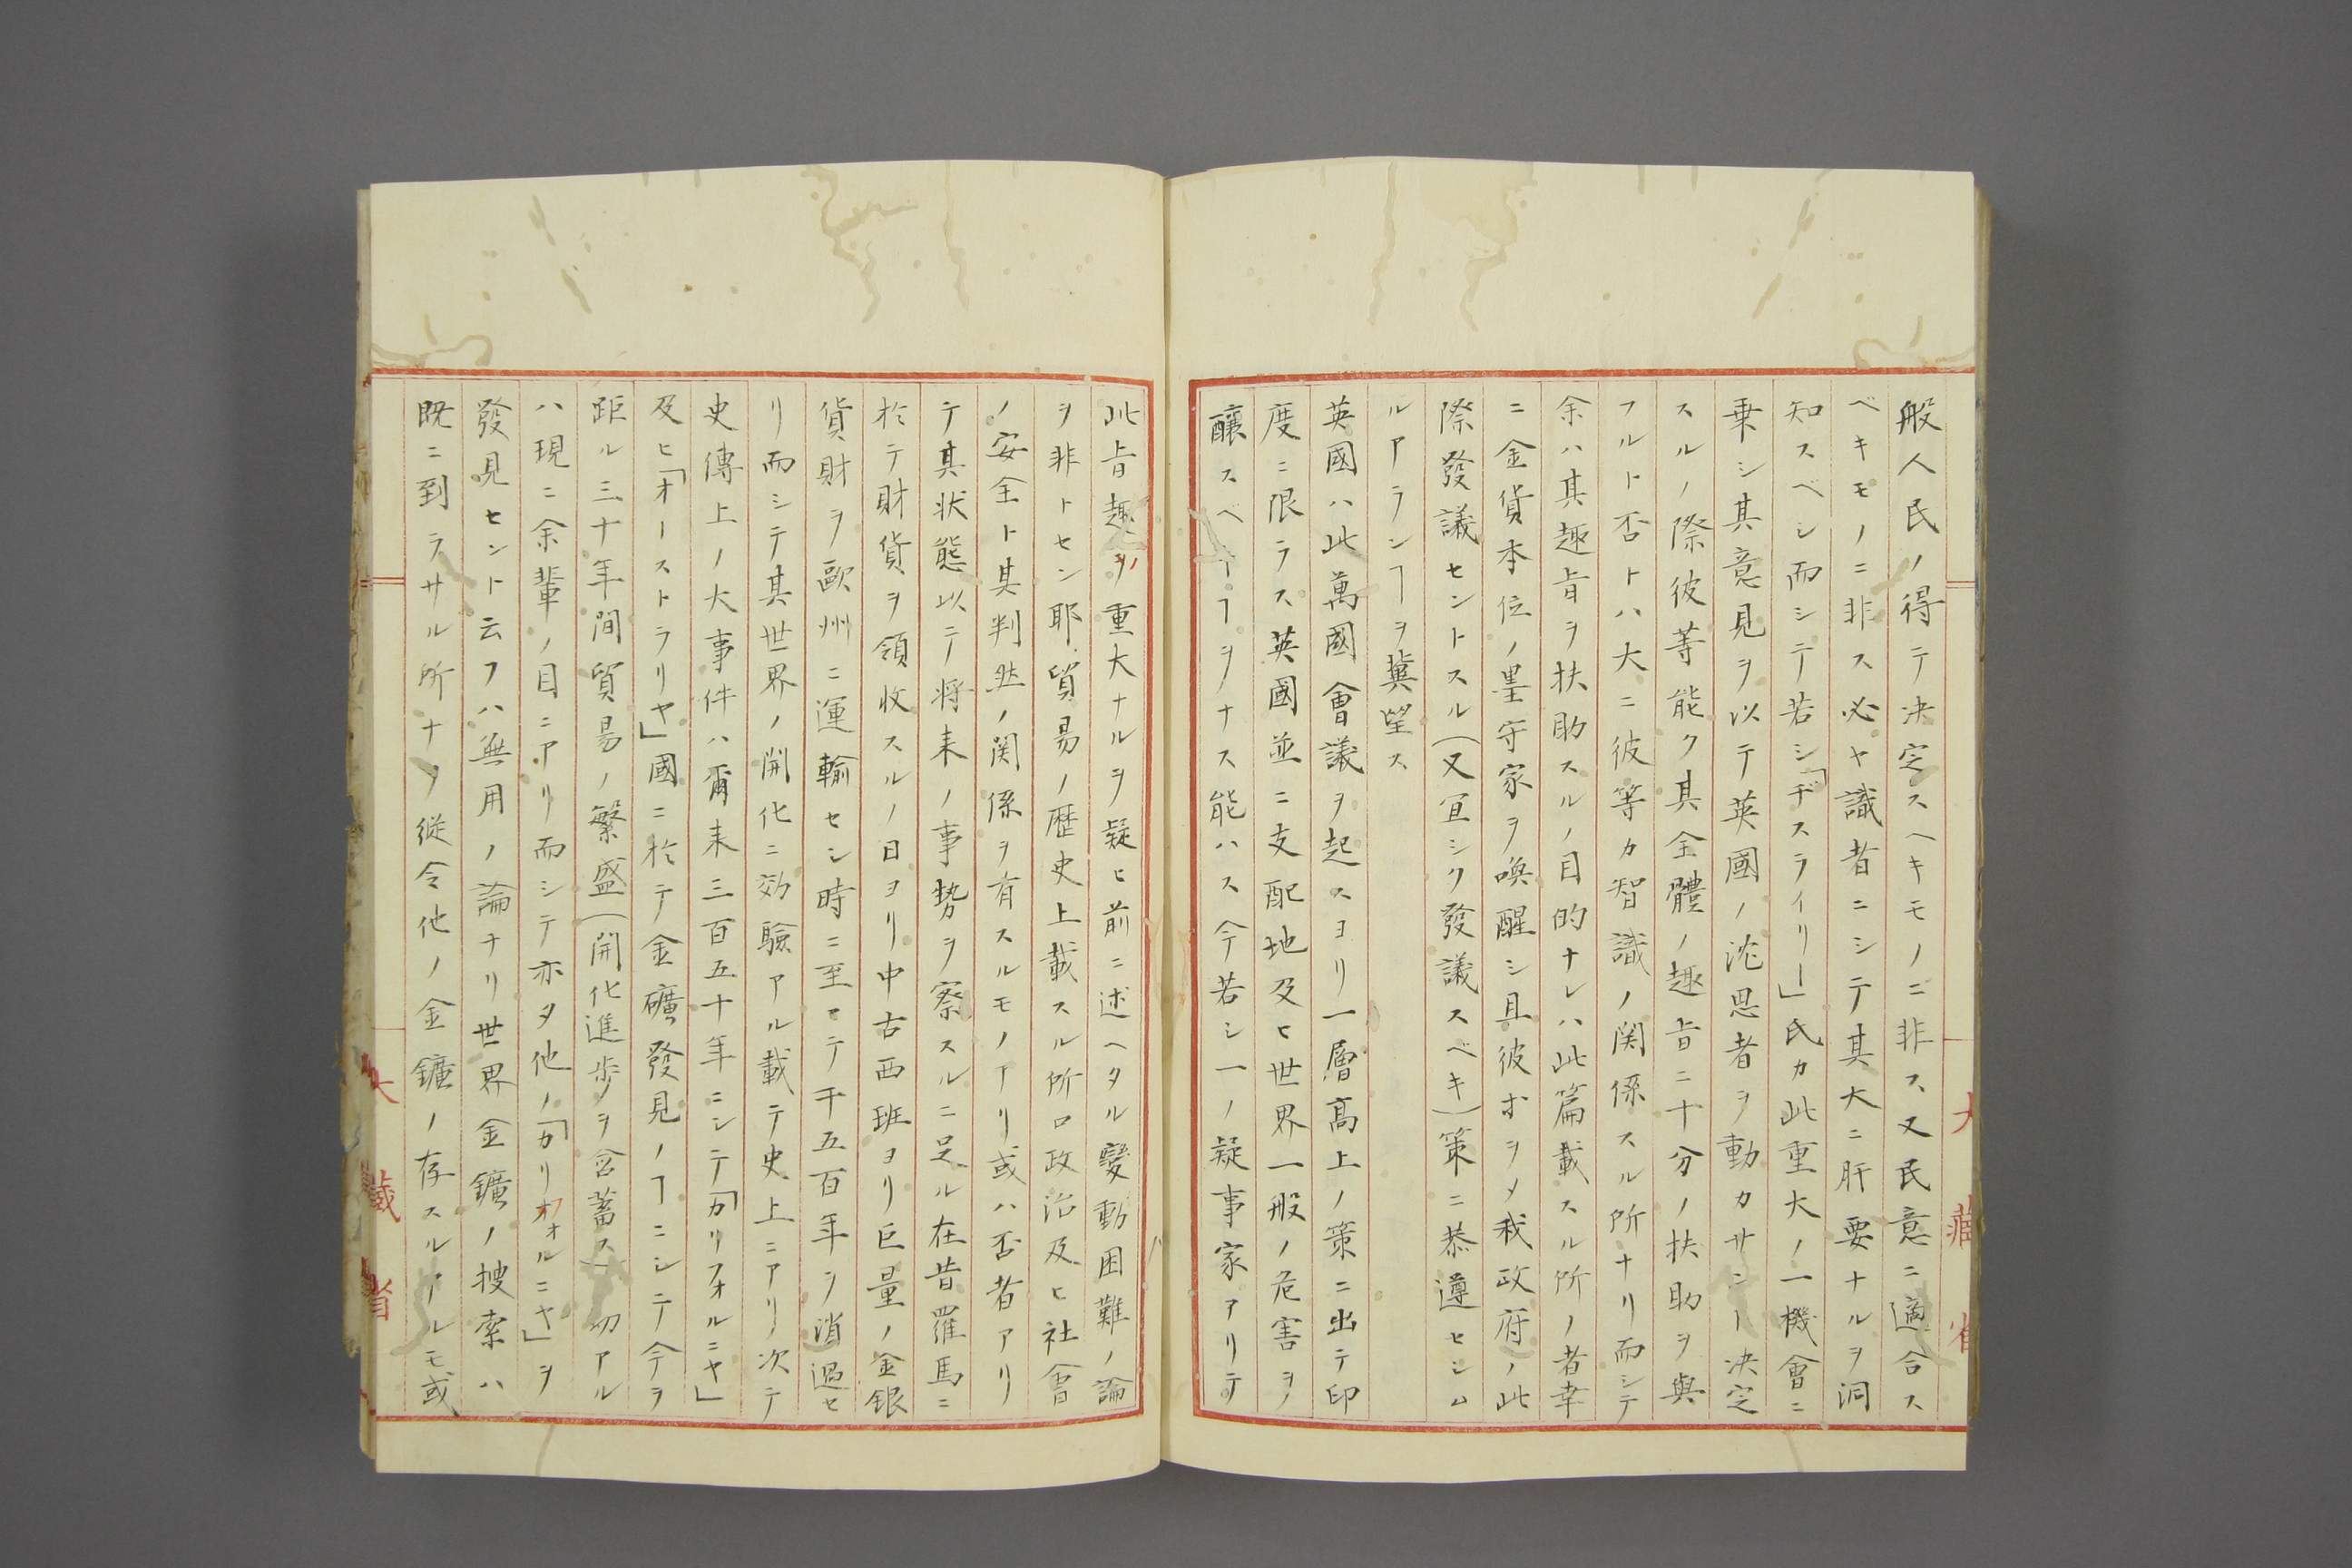 般人民ノ得テ决定スヘキモノニ非ス又民意ニ適合ス
ベキモノニ非ス必ヤ識者ニシテ其大ニ肝要ナルヲ洞
知スベシ而シテ若シ「ヂスライリー」氏カ此重大ノ一機會ニ
乗シ其意見ヲ以テ英國ノ沈思者ヲ動カサンー决定
スルノ際彼等能ク其全體ノ趣旨ニ十分ノ扶助ヲ與
フルト否トハ大ニ彼等カ智識ノ関係スル所ナリ而シテ
余ハ其趣旨ヲ扶助スルノ目的ナレハ此篇載スル所ノ者幸
ニ金貨本位ノ墨守家ヲ喚醒シ且彼ホヲメ我政府ノ此
際發議セントスル(又宜シク發議スベキ)策ニ恭遵セシム
ルアランヿヲ冀望ス
英國ハ此萬國會議ヲ起スヨリ一層髙上ノ策ニ出テ印
度ニ限ラス英國並ニ支配地及ヒ世界一般ノ危害ヲ
醸スベヿヲナス能ハス今若シ一ノ疑事家アリテ
此旨趣ノ重大ナルヲ疑ヒ前ニ述ヘタル變動困難ノ論
ヲ非トセン耶貿易ノ歴史上載スル所口政治及ヒ社會
ノ安全ト其判然ノ関係ヲ有スルモノアリ或ハ否者アリ
テ其状態以テ将来ノ事勢ヲ察スルニ足ル在昔羅馬ニ
於テ財貨ヲ領收スルノ日ヨリ中古西班ヨリ巨量ノ金銀
貨財ヲ歐州ニ運輸セシ時ニ至マテ千五百年ヲ消過セ
リ而シテ其世界ノ開化ニ効驗アル載テ史上ニアリ次テ
史傳上ノ大事件ハ爾来三百五十年ニシテ「カリフォルニヤ」
及ヒ「オーストラリヤ」國ニ於テ金礦發見ノヿニシテ今ヲ
距ル三十年間貿易ノ繁盛(開化進歩ヲ含蓄ス)一切アル
ハ現ニ余輩ノ目ニアリ而シテ亦タ他ノ「カリフォルニヤ」ヲ
發見セント云フハ無用ノ論ナリ世界金鑛ノ捜索ハ
既ニ到ラサル所ナク縦令他ノ金鑛ノ存スルアルモ或
大藏省
大藏省